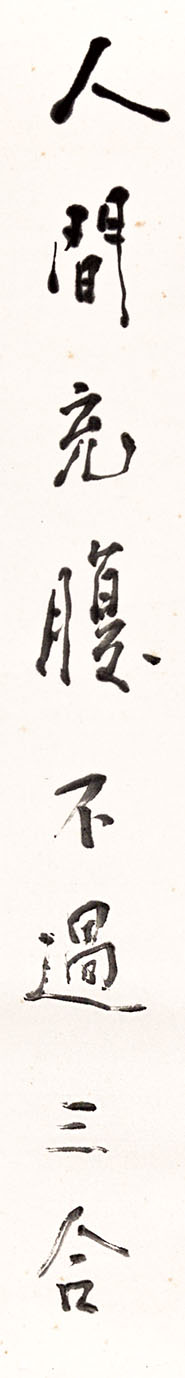 人間充腹不過三合